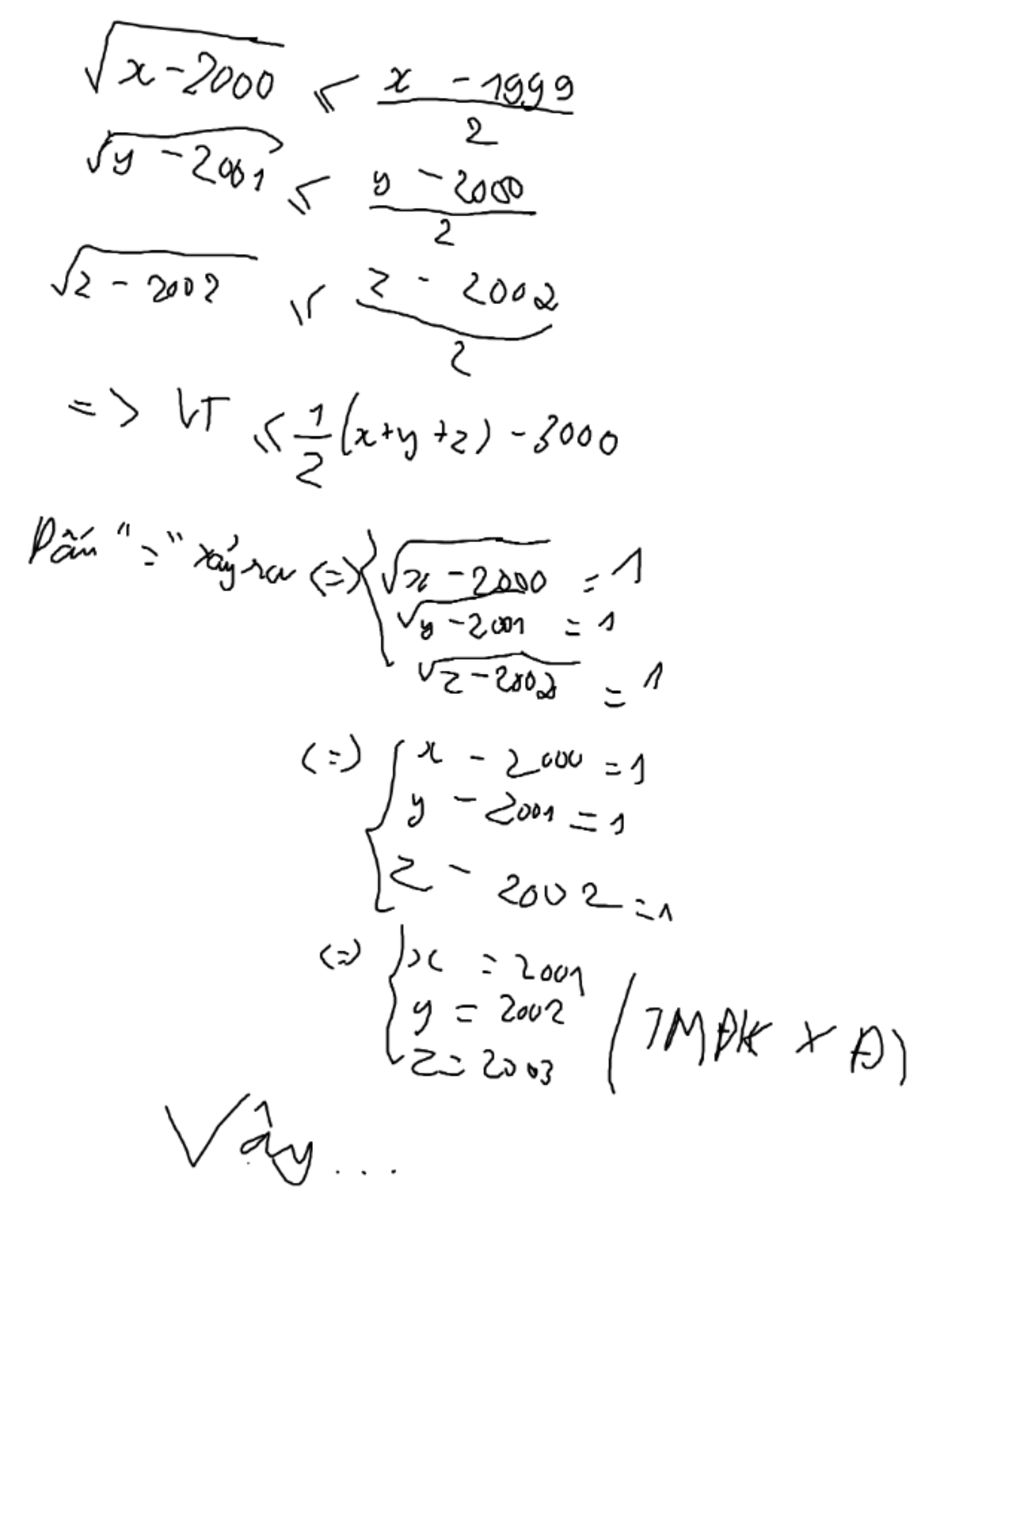 √(x - 2000) ≤ (x - 1999)/2
√(y - 2001) ≤ (y - 2000)/2
√(z - 2002) ≤ (z - 2002)/2
=> VT ≤ 1/2 (x+y+z) - 3000
Dấu "=" xảy ra (=) { √(x - 2000) = 1
√(y - 2001) = 1
√(z - 2002) = 1
(=) { x - 2000 = 1
y - 2001 = 1
z - 2002 = 1
(=) { x = 2001
y = 2002 (TMĐK XĐ)
z = 2003
Vây...